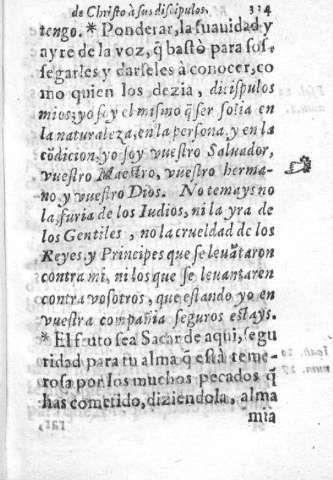 de Christo à sus discipulos. 314
tengo. * Ponderar, la suauidad y
ayre de la voz, q̃ bastò para sos-
segarles y darseles à conocer, co
mo quien los dezia, discipulos
mios; yo soy el mismo q̃ ser solia en
la naturaleza, en la persona, y en la
cõdicion; yo soy vuestro Saluador,
vuestro Maestro, vuestro herma-
no, y vuestro Dios. No temays no
la furia de los Iudios, ni la yra de
los Gentiles, no la crueldad de los
Reyes, y Principes que se leuãtaron
contra mi, ni los que se leuantaren
contra vosotros, que estando yo en
vuestra compañia seguros estays.
* El fruto sea Sacar de aqui, segu
ridad para tu alma q̃ està teme-
rosa por los muchos pecados q̃
has cometido, diziendola, alma
mia